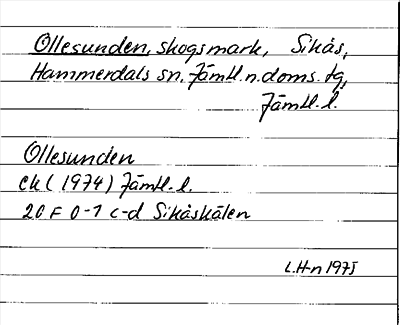 Ollesunden, skogsmark, Sikås,
Hammerdals sn, Jämtl. n. doms. tg,
Jämtl. l.
Ollesunden
ek (1974) Jämtl. l.
20 F 0-1 c-d Sikåskälen
L.H-n 1975